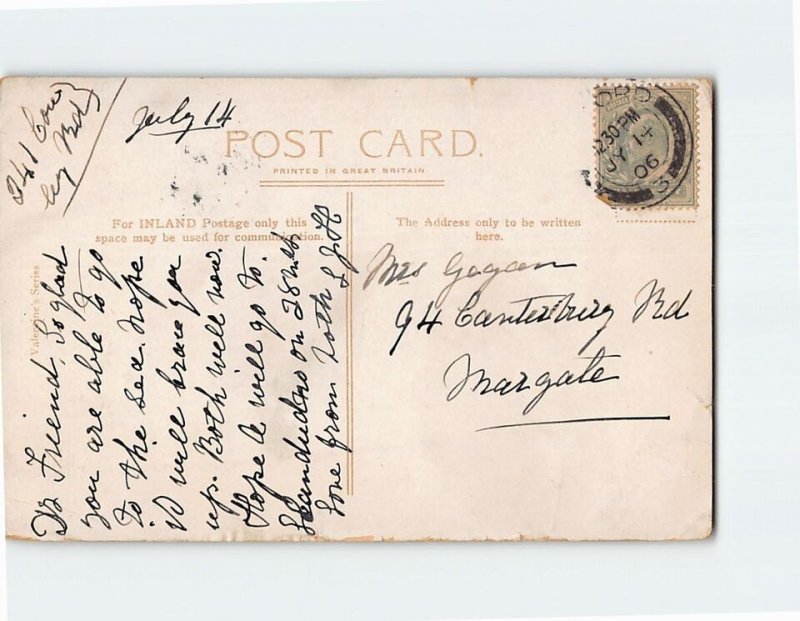 241 Cow
ley Rd
July 14
POST CARD.
PRINTED IN GREAT BRITAIN
For INLAND Postage only this
space may be used for communication.
The Address only to be written
here.
Valentine's Series
Dr Friend, So glad
you are able to go
to the sea. Hope
it will brace you
up. Both well now.
Hope to will go to
Llandudno on 28 inst
Love from both
Mrs Gogan
94 Canterbury Rd
Margate
ORD
12.30 PM
JY 14
06
3